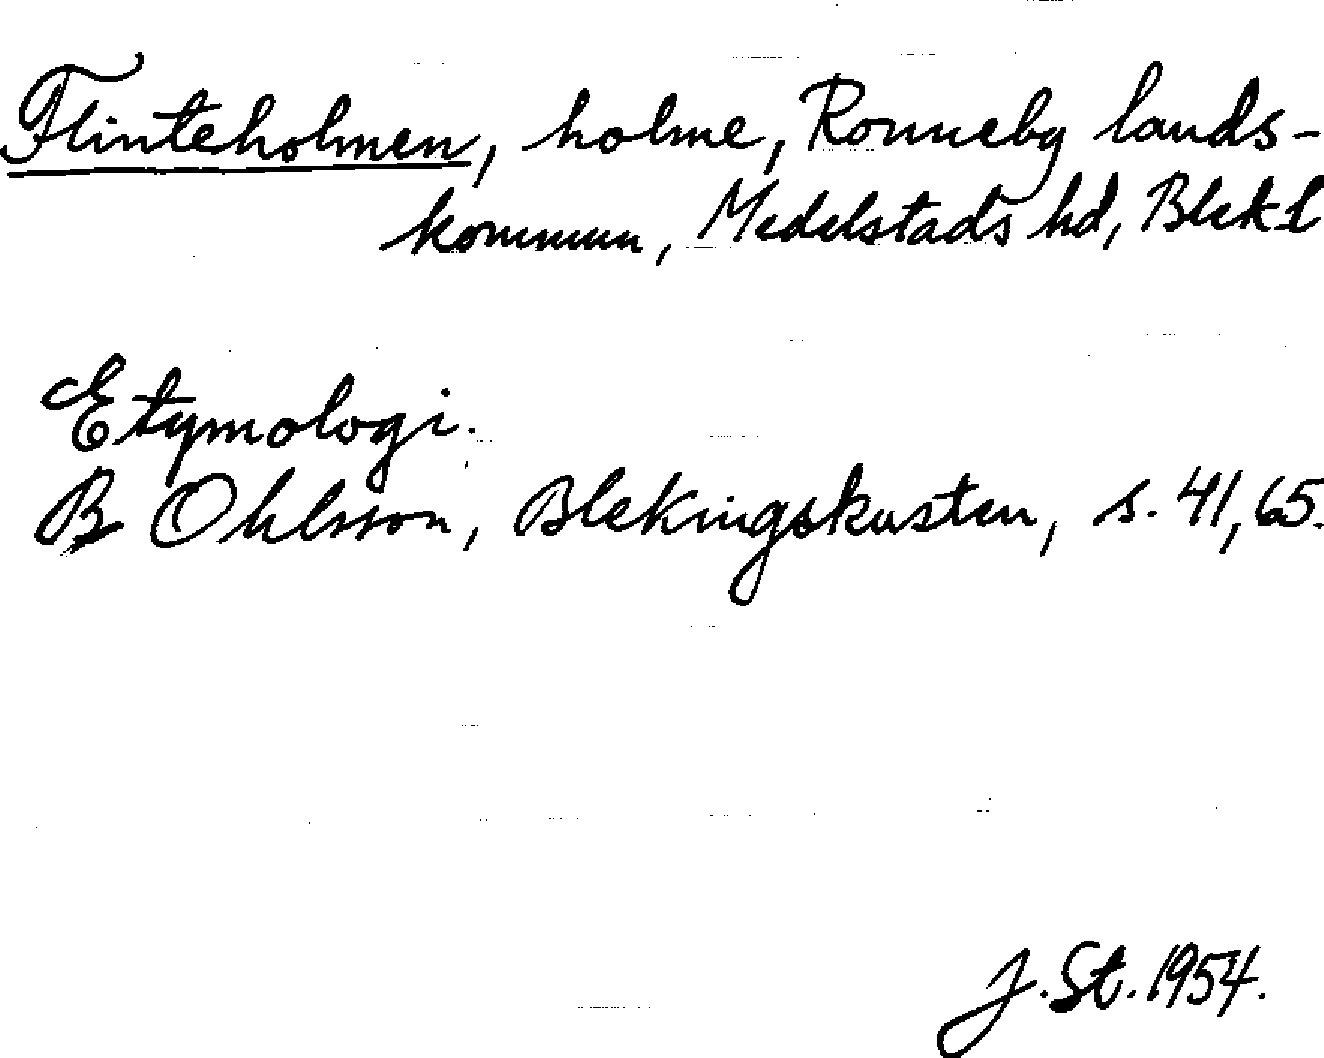 Flinteholmen, holme, Ronneby lands-
kommun, Medelstads hd, Blek l
Etymologi.
B Ohlsson, Blekingskusten, s. 41, 65.
J. St. 1954.